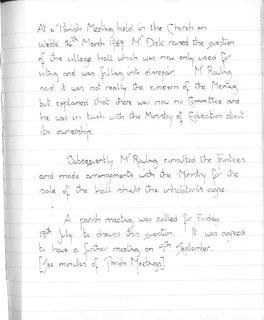 At a Parish Meeting held in the Church on
Weds 26th March 1969 Mr Dick raised the question
of the village hall which was now only used for
voting and was falling into disrepair. Mr Rawling
said it was not really the concern of the Meeting
but explained that there was now no Committee and
he was in touch with the Ministry of Education about
its ownership.
Subsequently Mr Rawling consulted the Trustees
and made arrangements with the Ministry for the
sale of the hall should the inhabitants agree.
A parish meeting was called for Friday
July to discuss this question. It was agreed
to have a further meeting on 5th September.
[See minutes of Parish Meetings]